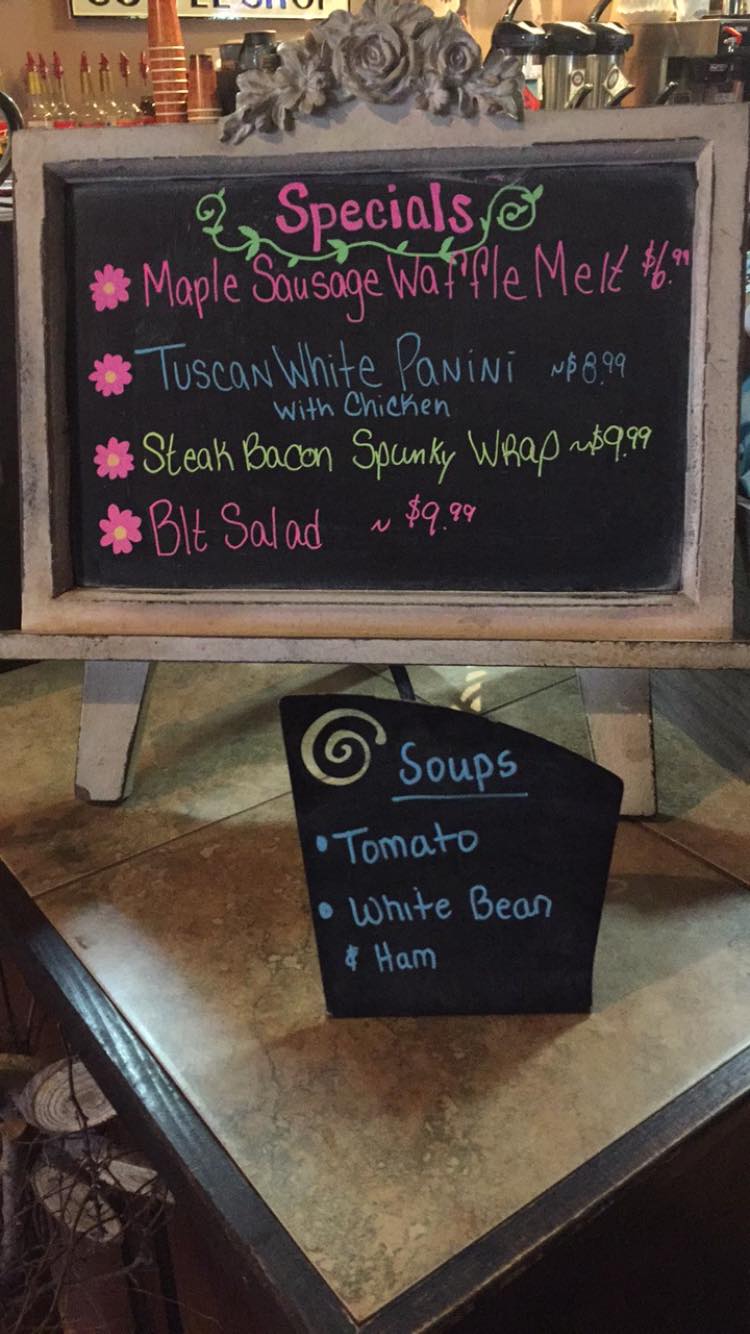 Specials
Maple Sausage Waffle Melt $6.99
Tuscan White Panini ~$8.99
with Chicken
Steak Bacon Spunky Wrap ~$9.99
Blt Salad ~ $9.99
Soups
• Tomato
• White Bean
& Ham